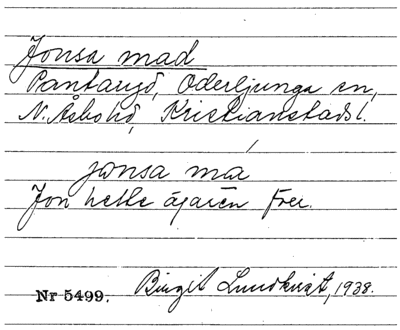 Jonsa mad
Oderljunga sn,
N. Åsbo hd, Kristianstads l.
jonsa ma
Jon hette ägaren förr.
Birgit Lundkvist, 1938.
Nr 5499.